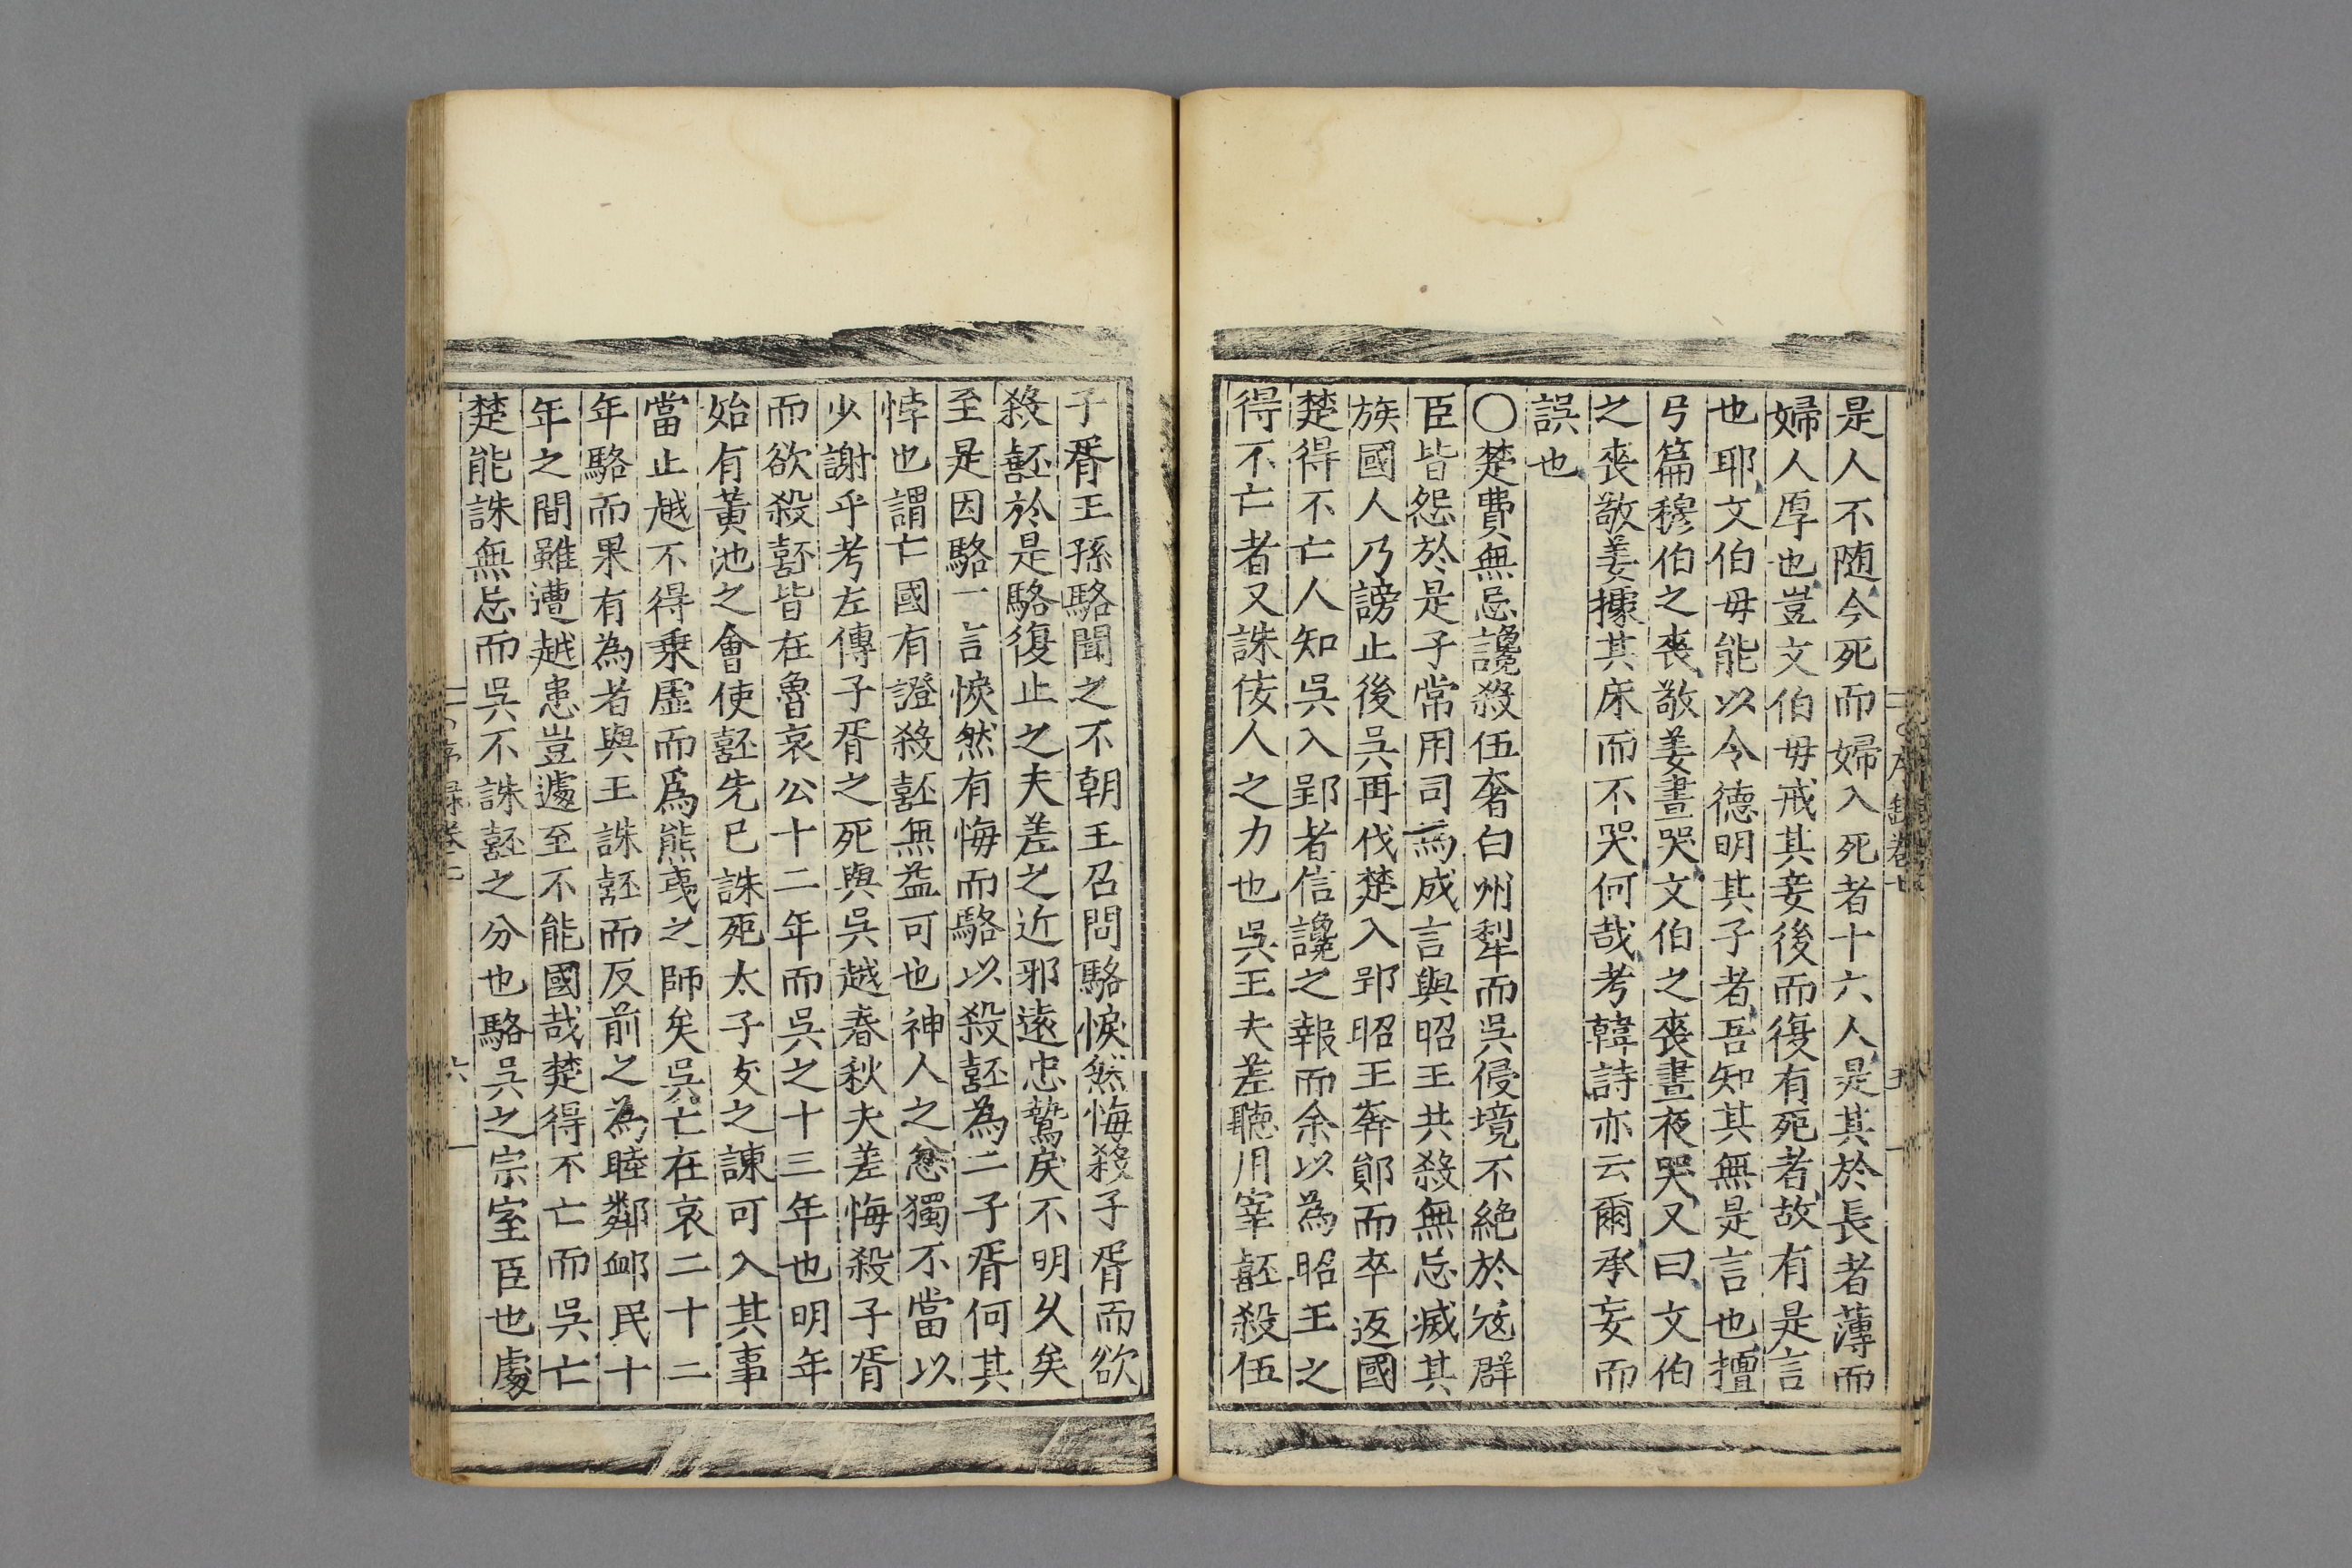 是人不随今死而婦入死者十六人是其於長者薄而
婦人厚也豈文伯毋戒其妾後而復有死者故有是言
也耶文伯毋能以令德明其子者吾知其無是言也檀
弓篇穆伯之喪敬姜晝哭文伯之喪晝夜哭又曰文伯
之喪敬姜據其床而不哭何哉考韓詩亦云爾承妄而
誤也
〇楚費無忌讒殺伍奢白州犁而吳侵境不絶於寇群
臣皆怨於是子常用司馬成言與昭王共殺無忌滅其
族國人乃謗止後吳再伐楚入郢昭王奔鄖而卒返國
楚得不亡人知吳入郢者信讒之報而余以為昭王之
得不亡者又誅佞人之力也吳王夫差聽用宰嚭殺伍
子胥王孫駱聞之不朝王召問駱悷然悔殺子胥而欲
殺嚭於是駱復止之夫差之近邪遠忠鷙戾不明久矣
至是因駱一言悷然有悔而駱以殺嚭為二子胥何其
悖也謂亡國有證殺嚭無益可也神人之忿獨不當以
少謝乎考左傳子胥之死與吳越春秋夫差悔殺子胥
而欲殺嚭皆在魯哀公十二年而吳之十三年也明年
始有黃池之會使嚭先已誅死太子友之諫可入其事
當止越不得乗虛而爲熊夷之師矣吳亡在哀二十二
年駱而果有為者與王誅嚭而反前之為睦鄰衈民十
年之間雖遭越患豈遽至不能國哉楚得不亡而吳亡
楚能誅無忌而吳不誅嚭之分也駱吳之宗室臣也處